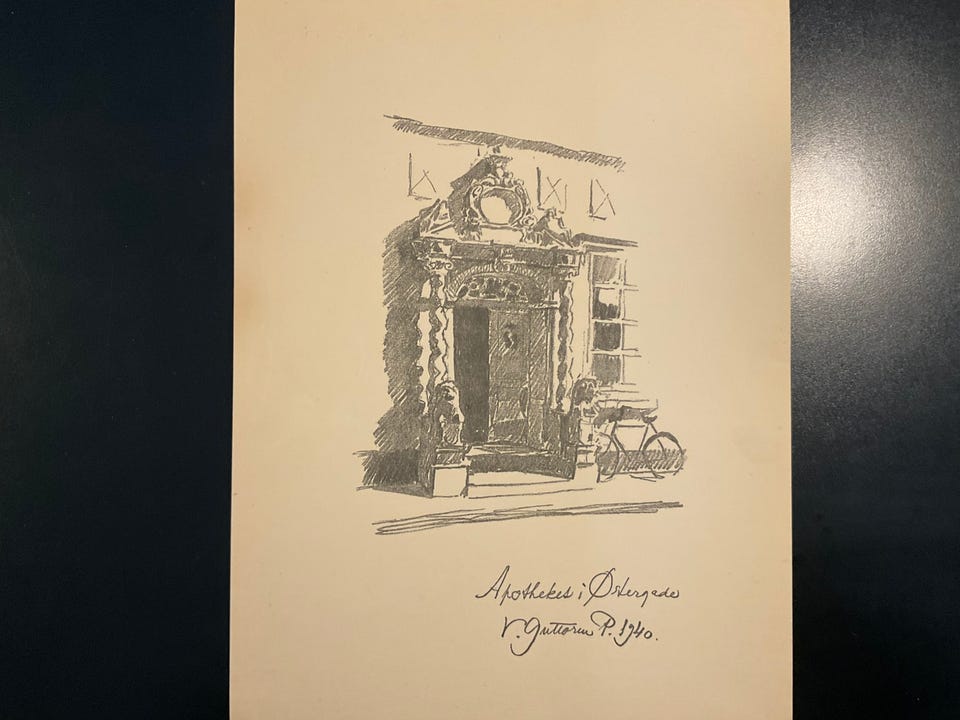 Apotheket i Østergade
V. Guttorm P. 1940.